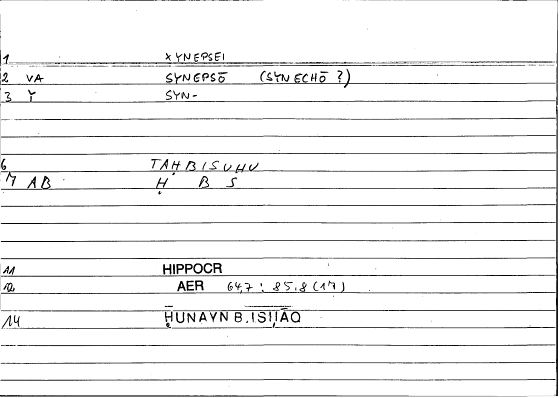 1 XYNEPSEI
2 VA SYNEPSŌ (SYNECHŌ ?)
3 Y SYN-
6 TAḤBISUHU
7 AB Ḥ B S
11 HIPPOCR
12 AER 64,7 : 85.8 (17)
14 ḤUNAYN B. ISḤĀQ